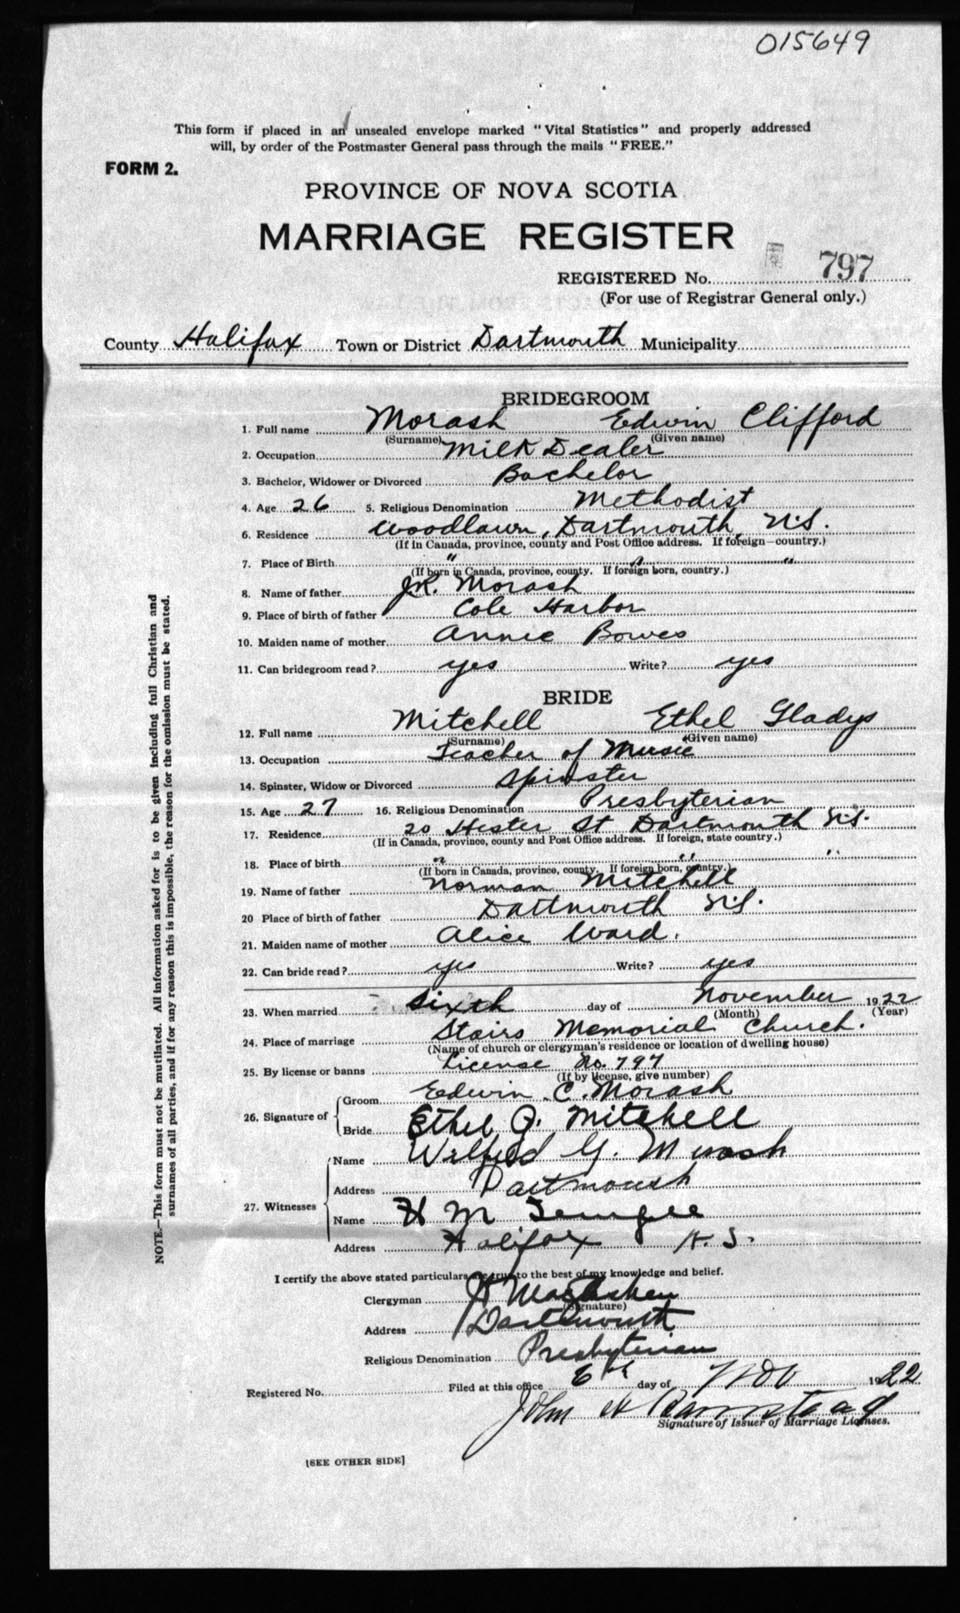 015649
This form if placed in an unsealed envelope marked "Vital Statistics" and properly addressed
will, by order of the Postmaster General pass through the mails "FREE."
FORM 2.
PROVINCE OF NOVA SCOTIA
MARRIAGE REGISTER
REGISTERED No. 797
(For use of Registrar General only.)
County Halifax Town or District Dartmouth Municipality
BRIDEGROOM
1. Full name Morash Edwin Clifford
(Surname) (Given name)
2. Occupation Milk Dealer
3. Bachelor, Widower or Divorced Bachelor
4. Age 26 5. Religious Denomination Methodist
6. Residence Woodlawn, Dartmouth, N.S.
(If in Canada, province, county and Post Office address. If foreign—country.)
7. Place of Birth " " "
(If born in Canada, province, county. If foreign born, country.)
8. Name of father J.K. Morash
9. Place of birth of father Cole Harbor
10. Maiden name of mother Annie Bowes
11. Can bridegroom read? yes Write? yes
BRIDE
12. Full name Mitchell Ethel Gladys
(Surname) (Given name)
13. Occupation Teacher of Music
14. Spinster, Widow or Divorced Spinster
15. Age 27 16. Religious Denomination Presbyterian
17. Residence 20 Hester St Dartmouth N.S.
(If in Canada, province, county and Post Office address. If foreign, state country.)
18. Place of birth " " "
(If born in Canada, province, county. If foreign born, country.)
19. Name of father Norman Mitchell
20 Place of birth of father Dartmouth N.S.
21. Maiden name of mother Alice Ward.
22. Can bride read? yes Write? yes
23. When married sixth day of November 1922
(Month) (Year)
24. Place of marriage Stairs Memorial Church.
(Name of church or clergyman's residence or location of dwelling house)
25. By license or banns License No. 797
(If by license, give number)
26. Signature of Groom Edwin C. Morash
Bride Ethel G. Mitchell
27. Witnesses Name Wilfred G. Morash
Address Dartmouth
Name H M
Address Halifax N.S.
I certify the above stated particulars are true to the best of my knowledge and belief.
Clergyman
(Signature)
Address Dartmouth
Religious Denomination Presbyterian
Registered No. Filed at this office 6th day of Nov 1922
John H
Signature of Issuer of Marriage Licenses.
[SEE OTHER SIDE]
NOTE.—This form must not be mutilated. All information asked for is to be given including full Christian and
surnames of all parties, and if for any reason this is impossible, the reason for the omission must be stated.